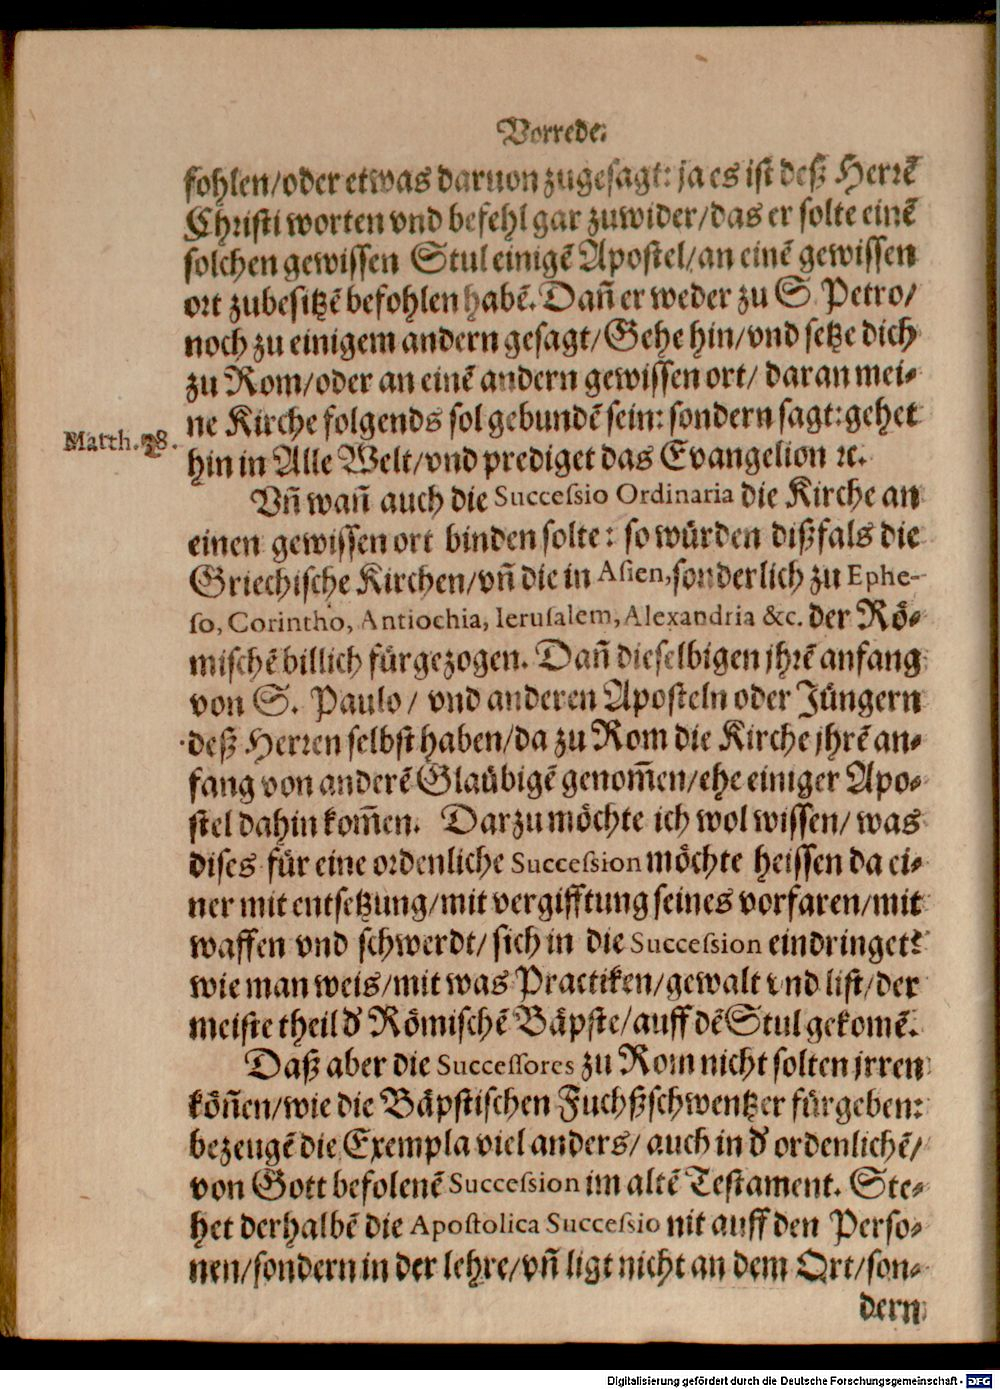 Vorrede.
fohlen/oder etwas daruon zugesagt: ja es ist deß Herrē
Christi worten vnd befehl gar zuwider/das er solte einē
solchen gewissen Stul einigē Apostel/an einē gewissen
ort zubesitzē befohlen habē. Dañ er weder zu S. Petro/
noch zu einigem andern gesagt/Gehe hin/vnd setze dich
zu Rom/oder an einē andern gewissen ort/ daran mei-
ne Kirche folgends sol gebundē sein: sondern sagt: gehet
Matth. 28.
hin in Alle Welt/vnd prediget das Evangelion ꝛc.
Vñ wañ auch die Succeſsio Ordinaria die Kirche an
einen gewissen ort binden solte: so würden dißfals die
Griechische Kirchen/vñ die in Aſien, sonderlich zu Ephe-
ſo, Corintho, Antiochia, Ieruſalem, Alexandria &c. der Rö-
mischē billich fürgezogen. Dañ dieselbigen jhrē anfang
von S. Paulo/ vnd anderen Aposteln oder Jüngern
deß Herren selbst haben/da zu Rom die Kirche jhrē an-
fang von anderē Glaübigē genom̃en/ehe einiger Apo-
stel dahin kom̃en. Darzu möchte ich wol wissen/ was
dises für eine ordenliche Succeſsion möchte heissen da ei-
ner mit entsetzung/mit vergifftung seines vorfaren/mit
waffen vnd schwerdt/ sich in die Succeſsion eindringet?
wie man weis/mit was Practiken/gewalt vnd list/der
meiste theil d' Römischē Bäpste/auff dē Stul gekomē.
Daß aber die Succeſſores zu Rom nicht solten jrren
köñen/wie die Bäpstischen Fuchßschwentzer fürgeben:
bezeugē die Exempla viel anders/ auch in d' ordenlichē/
von Gott befolenē Succeſsion im altē Testament. Ste-
het derhalbē die Apoſtolica Succeſsio nit auff den Perso-
nen/sondern in der lehre/vñ ligt nicht an dem Ort/son-
dern
Digitalisierung gefördert durch die Deutsche Forschungsgemeinschaft - DFG